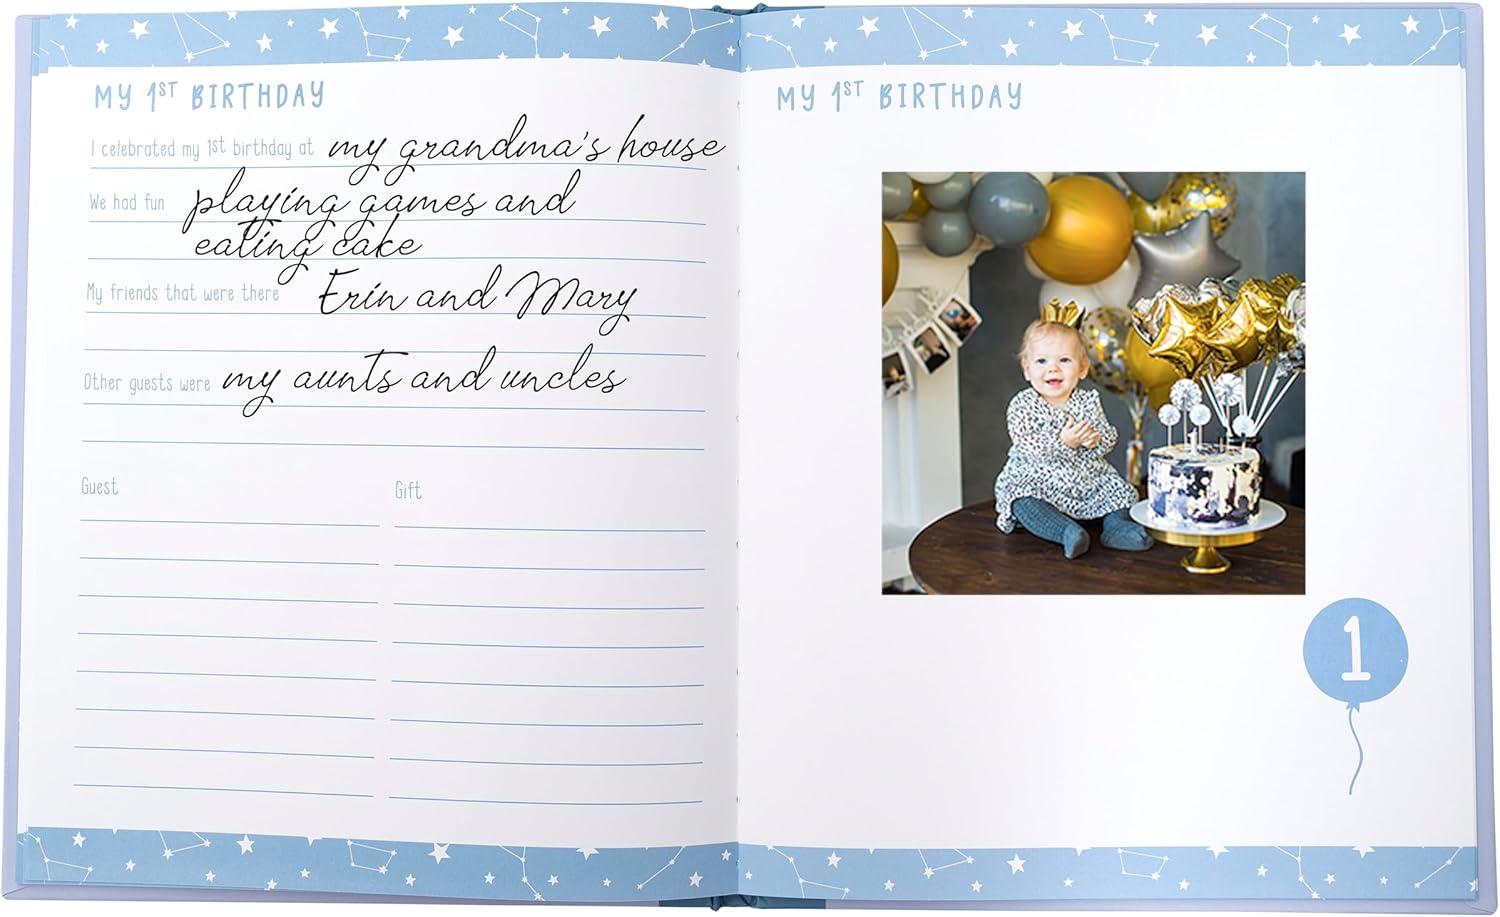 MY 1ST BIRTHDAY
I celebrated my 1st birthday at my grandma's house
We had fun playing games and
eating cake
My friends that were there Erin and Mary
Other guests were my aunts and uncles
Guest Gift
MY 1ST BIRTHDAY
1